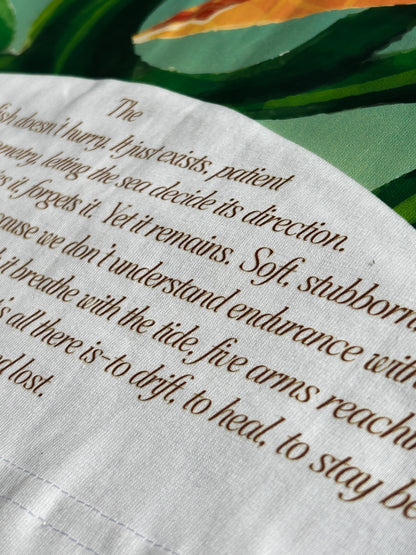 The
fish doesn't hurry. It just exists, patient
letting the sea decide its direction.
it, forgets it. Yet it remains. Soft, stubborn
we don't understand endurance
it breathe with the tide, five arms
all there is—to drift, to heal, to stay
lost.